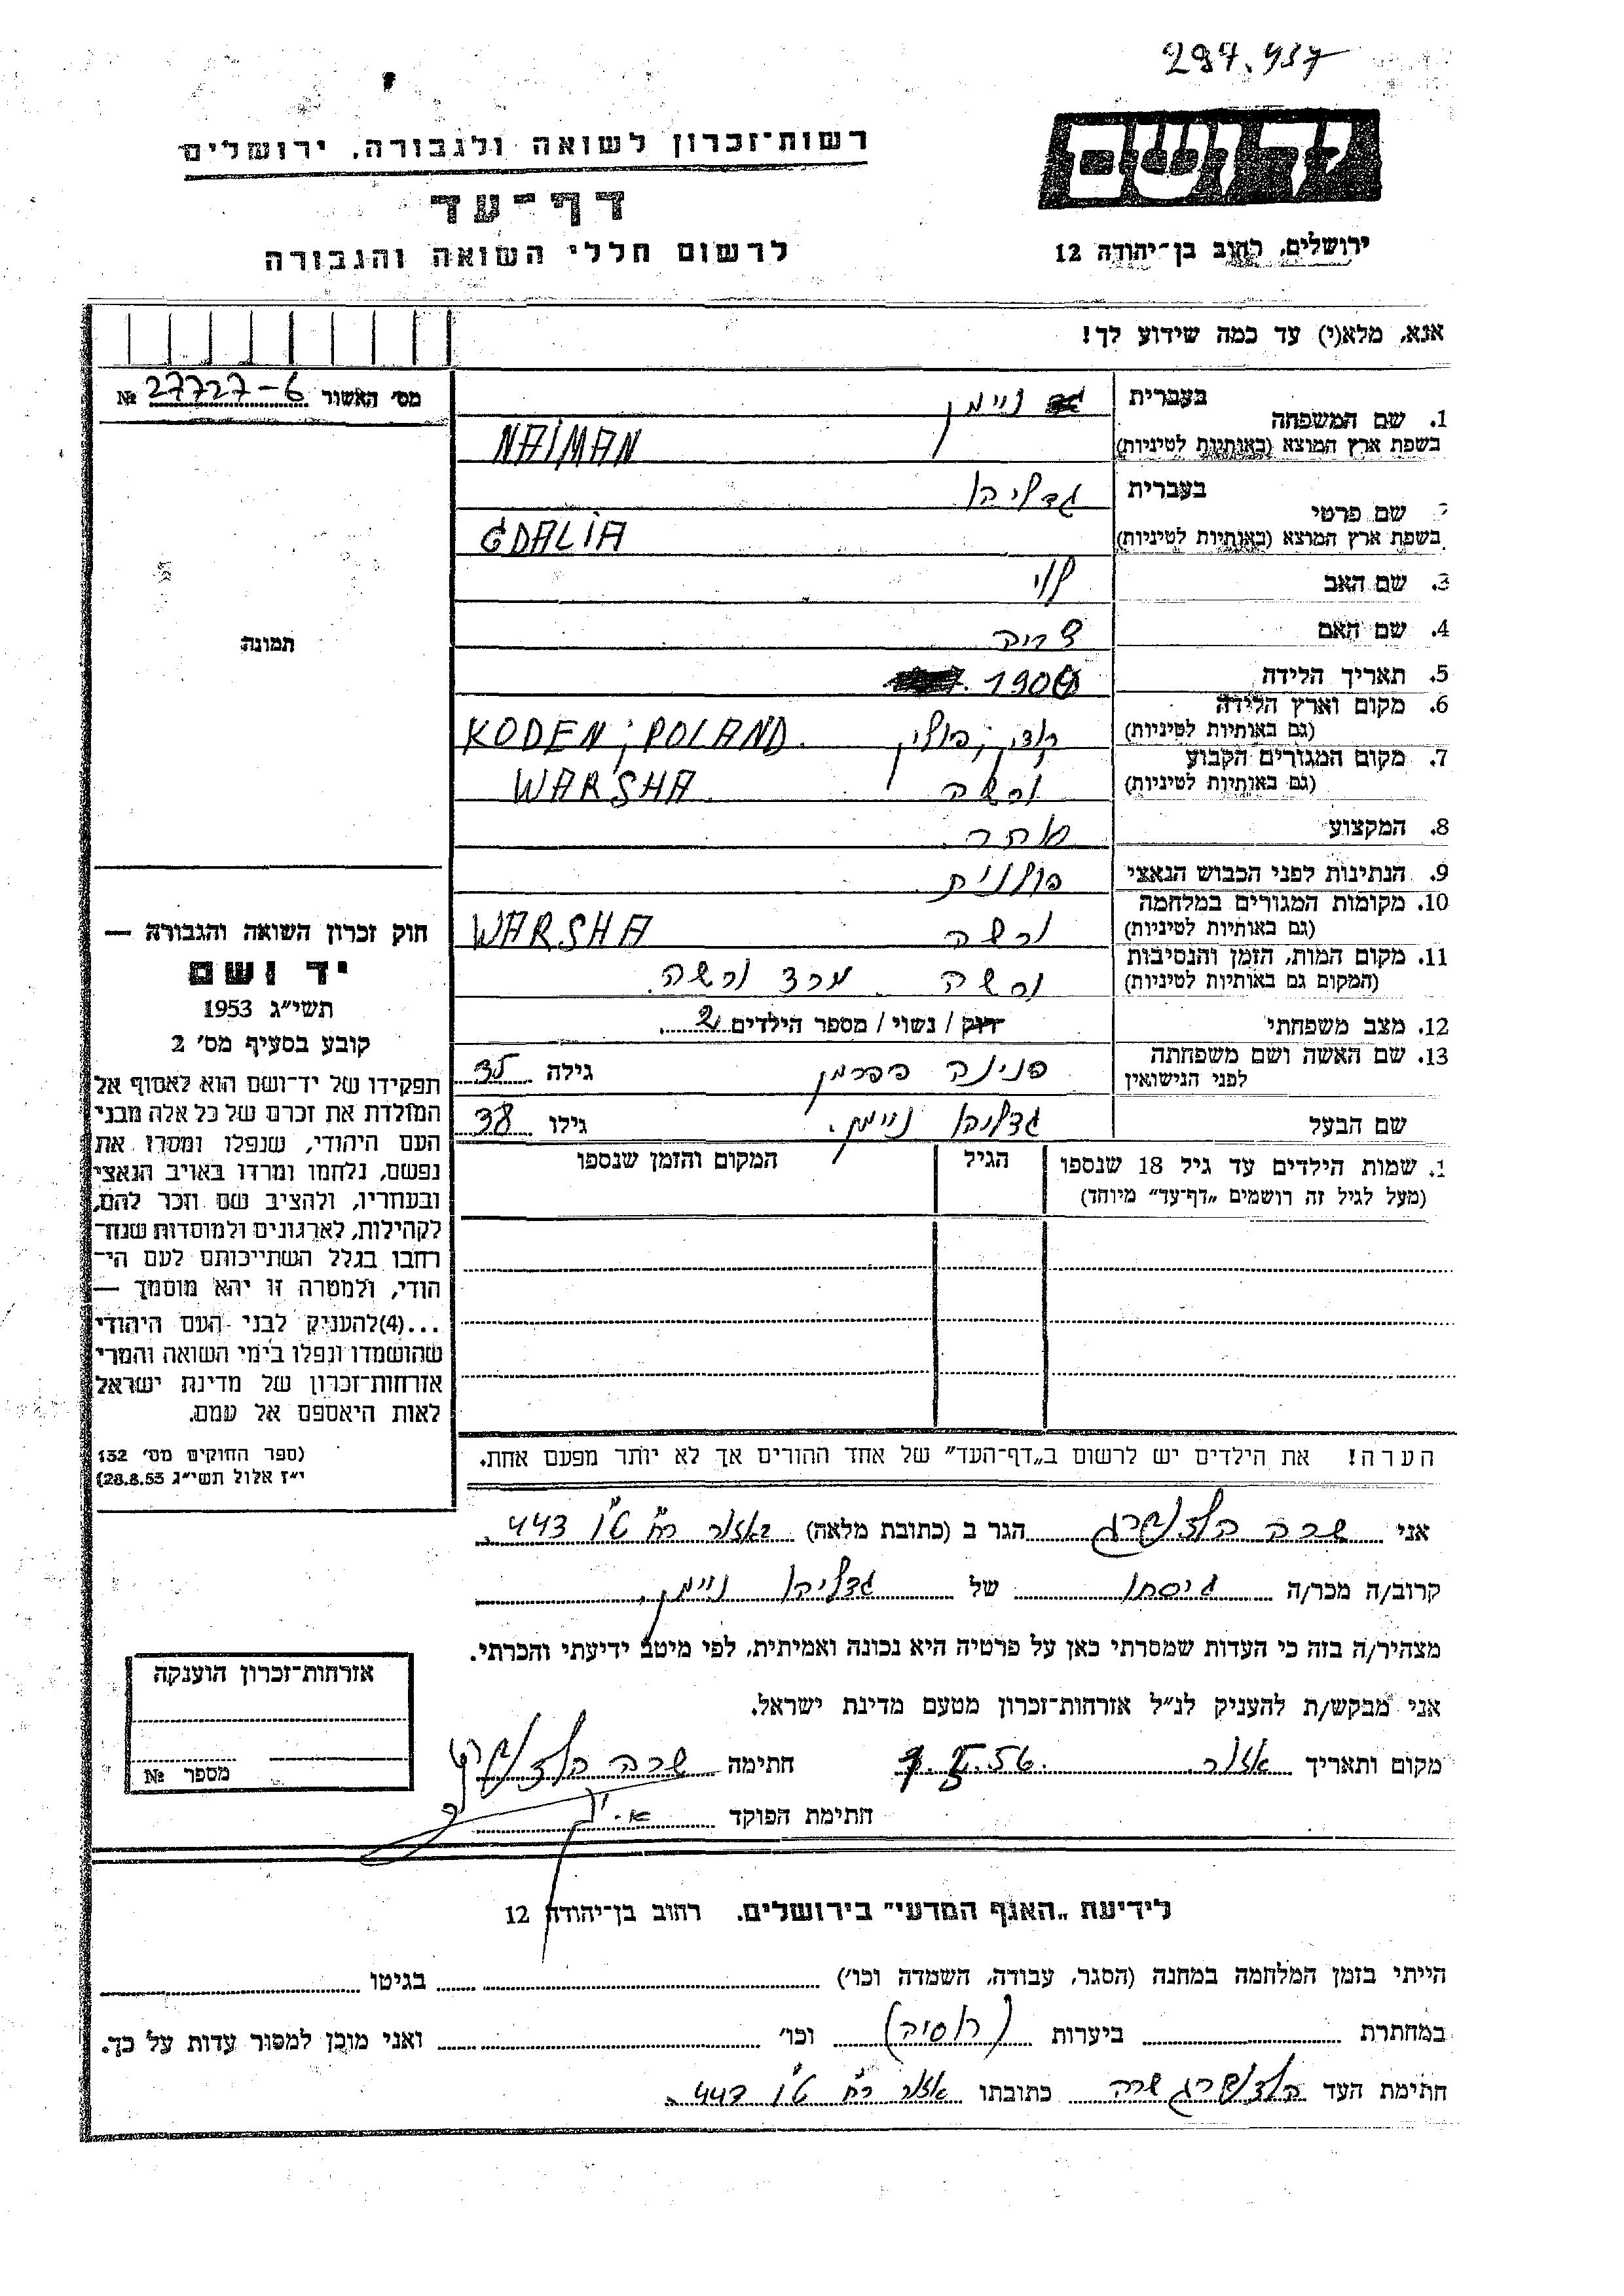 297.457
רשות־זכרון לשואה ולגבורה, ירושלים
יד ושם
דף־עד
לרשום חללי השואה והגבורה
ירושלים, רחוב בן־יהודה 12
אנא, מלא(י) עד כמה שידוע לך!
מס׳ האשור 27727-6 №
1. שם המשפחה בעברית ניימן
בשפת ארץ המוצא (באותיות לטיניות) NAIMAN
שם פרטי בעברית גדליהו
בשפת ארץ המוצא (באותיות לטיניות) GDALIA
3. שם האב לוי
4. שם האם
5. תאריך הלידה 1900
6. מקום וארץ הלידה
(גם באותיות לטיניות) קודן, פולין KODEN, POLAND
7. מקום המגורים הקבוע
(גם באותיות לטיניות) ורשה WARSHA
8. המקצוע סוחר
9. הנתינות לפני הכבוש הנאצי פולנית
10. מקומות המגורים במלחמה
(גם באותיות לטיניות) ורשה WARSHA
11. מקום המות, הזמן והנסיבות
(המקום גם באותיות לטיניות) ורשה מרד ורשה
12. מצב משפחתי רווק / נשוי / מספר הילדים 2
13. שם האשה ושם משפחתה
לפני הנישואין פנינה גילה 35
שם הבעל גדליהו ניימן גילו 38
1. שמות הילדים עד גיל 18 שנספו הגיל המקום והזמן שנספו
(מעל לגיל זה רושמים „דף־עד״ מיוחד)
תמונה
חוק זכרון השואה והגבורה —
יד ושם
תשי״ג 1953
קובע בסעיף מס׳ 2
תפקידו של יד־ושם הוא לאסוף אל
המולדת את זכרם של כל אלה מבני
העם היהודי, שנפלו ומסרו את
נפשם, נלחמו ומרדו באויב הנאצי
ובעוזריו, ולהציב שם וזכר להם,
לקהילות, לארגונים ולמוסדות שנח־
רחבו בגלל השתייכותם לעם הי־
הודי, ולמטרה זו יהא מוסמך —
...(4)להעניק לבני העם היהודי
שהושמדו ונפלו בימי השואה והמרי
אזרחות־זכרון של מדינת ישראל
לאות היאספם אל עמם.
(ספר החוקים מס׳ 132
י״ז אלול תשי״ג 28.8.53)
הערה! את הילדים יש לרשום ב„דף־העד״ של אחד ההורים אך לא יותר מפעם אחת.
אני שרה הולצברג הגר ב (כתובת מלאה) באזור רח׳ ט״ו 443
קרוב/ה מכר/ה גיסתו של גדליהו ניימן
מצהיר/ה בזה כי העדות שמסרתי כאן על פרטיה היא נכונה ואמיתית, לפי מיטב ידיעתי והכרתי.
אני מבקש/ת להעניק לנ״ל אזרחות־זכרון מטעם מדינת ישראל.
מקום ותאריך אזור 56. חתימה שרה הולצברג
חתימת הפוקד
אזרחות־זכרון הוענקה
מספר №
לידיעת „האגף המדעי״ בירושלים. רחוב בן־יהודה 12
הייתי בזמן המלחמה במחנה (הסגר, עבודה, השמדה וכו׳) בגיטו
במחתרת ביערות (רוסיה) וכו׳ ואני מוכן למסור עדות על כך.
חתימת העד הולצברג שרה כתובתו אזור רח׳ ט״ו 443